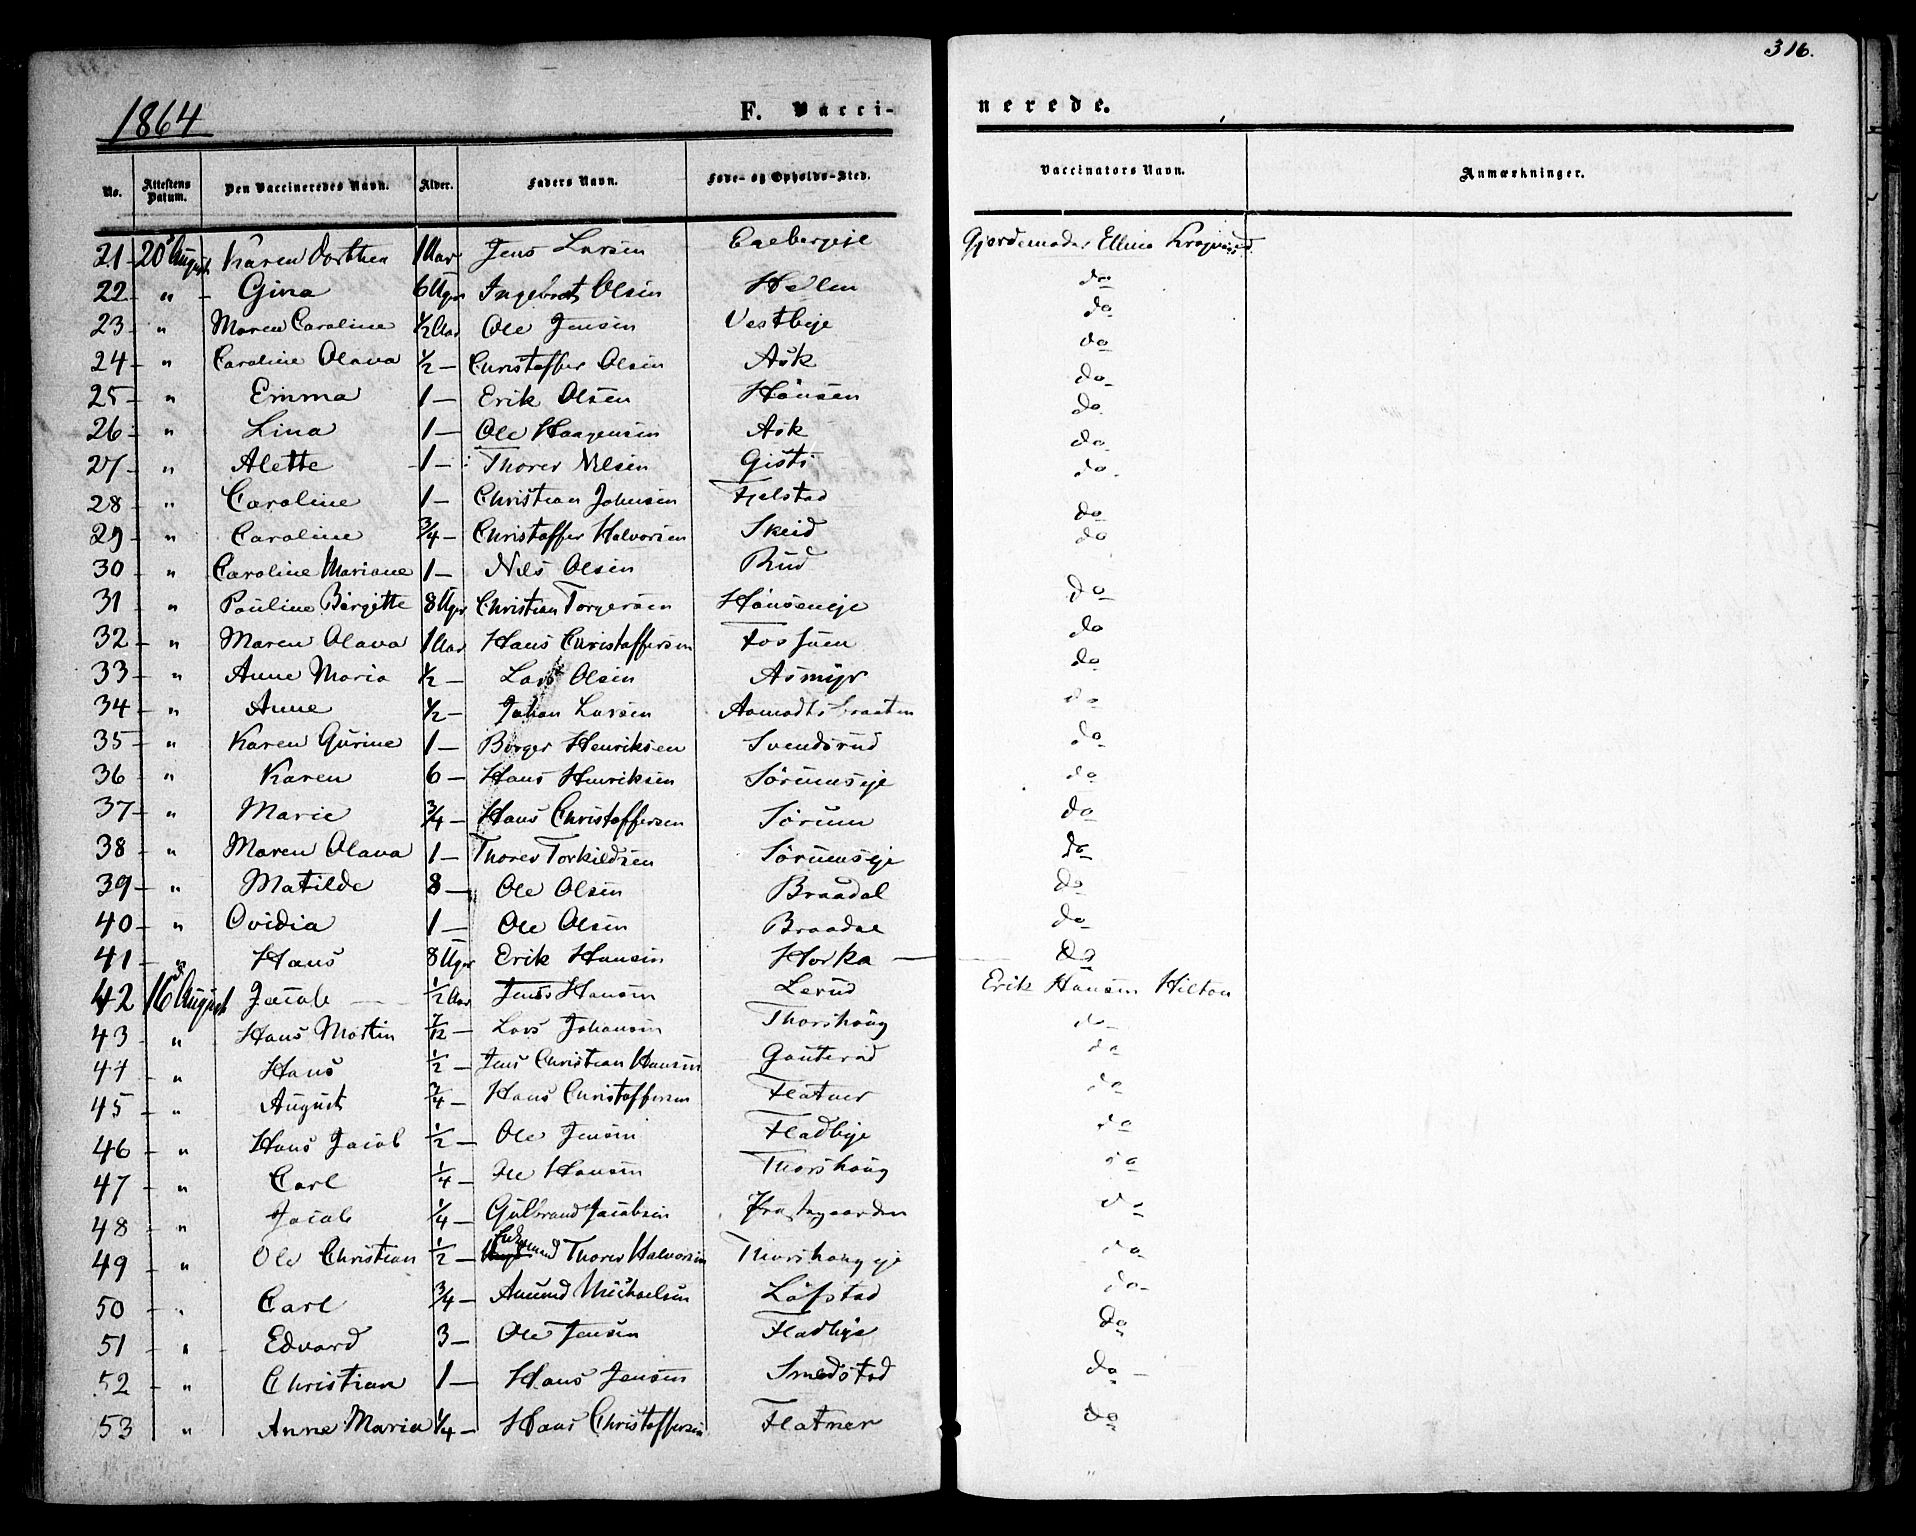 316.
1864 F. Vaccinerede.
No. Attestens Datum. Den Vaccineredes Navn. Alder. Faders Navn. Føde- og Opholds-Sted. Vaccinators Navn. Anmærkninger.
21 - 20 August Karen Dorthea 1 Aar Jens Larsen Gjordemoder Elline
22 - " - Gina 6 Uger Ingebret Olsen Hellen do
23 - " Maren Caroline 1/2 Aar Ole Jensen Vestbye do
24 - " Caroline Olava 1/2 - Christoffer Olsen Ask do
25 - " Emma 1 - Erik Olsen Hønsen do
26 - " Lina 1 - Ole Haagensen Ask do
27 - " Alette 1 - Thorer Nilsen Gists do
28 - " Caroline 1 - Christian Johnsen Fjelstad do
29 - " Caroline 3/4 - Christoffer Halvorsen Skeid do
30 - " Caroline Mariane 1 - Nils Olsen Rud do
31 - " Pauline Birgitte 8 Uger Christian Torgersen Hønseneje do
32 - " Maren Olava 1 Aar Hans Christoffersen Fossuem do
33 - " Anne Maria 1/2 - Lars Olsen Asmyr do
34 - " Anne 1/2 - Johan Larsen Aamodtsbraaten do
35 - " Karen Gurine 1 - Borger Henriksen Svendsrud do
36 - " Karen 6 - Hans Henriksen Sørumseje do
37 - " Marie 3/4 - Hans Christoffersen Sørum do
38 - " Maren Olava 1 - Thorer Torkildsen Sørumseje do
39 - " Matilde 8 - Ole Olsen Braadal do
40 - " Ovidia 1 - Ole Olsen Braadal do
41 - " Hans 8 Uger Erik Hansen Horka - do
42 16 August Jacob 1/2 Aar Jens Hansen Lerud Erik Hansen Hilton
43 - " Hans Martin 7/12 - Lars Johansen Thorshoug do
44 - " Hans 1/2 - Jens Christian Hansen Gouterud do
45 - " August 3/4 - Hans Christoffersen Flatner do
46 - " Hans Jacob 1/2 - Ole Jensen Fladbye do
47 - " Carl 1/4 - Ole Hansen Thorshoug do
48 - " Jacob 1/4 - Gulbrand Jacobsen Præstegaarden do
49 - " Ole Christian 1/2 - Thorer Halvorsen Thorshougeje do
50 - " Carl 3/4 - Amund Michaelsen Løfstad do
51 - " Edvard 3 - Ole Jensen Fladbye do
52 - " Christian 1 - Hans Jensen Smedstad do
53 " Anne Maria 1/4 - Hans Christoffersen Flatner do